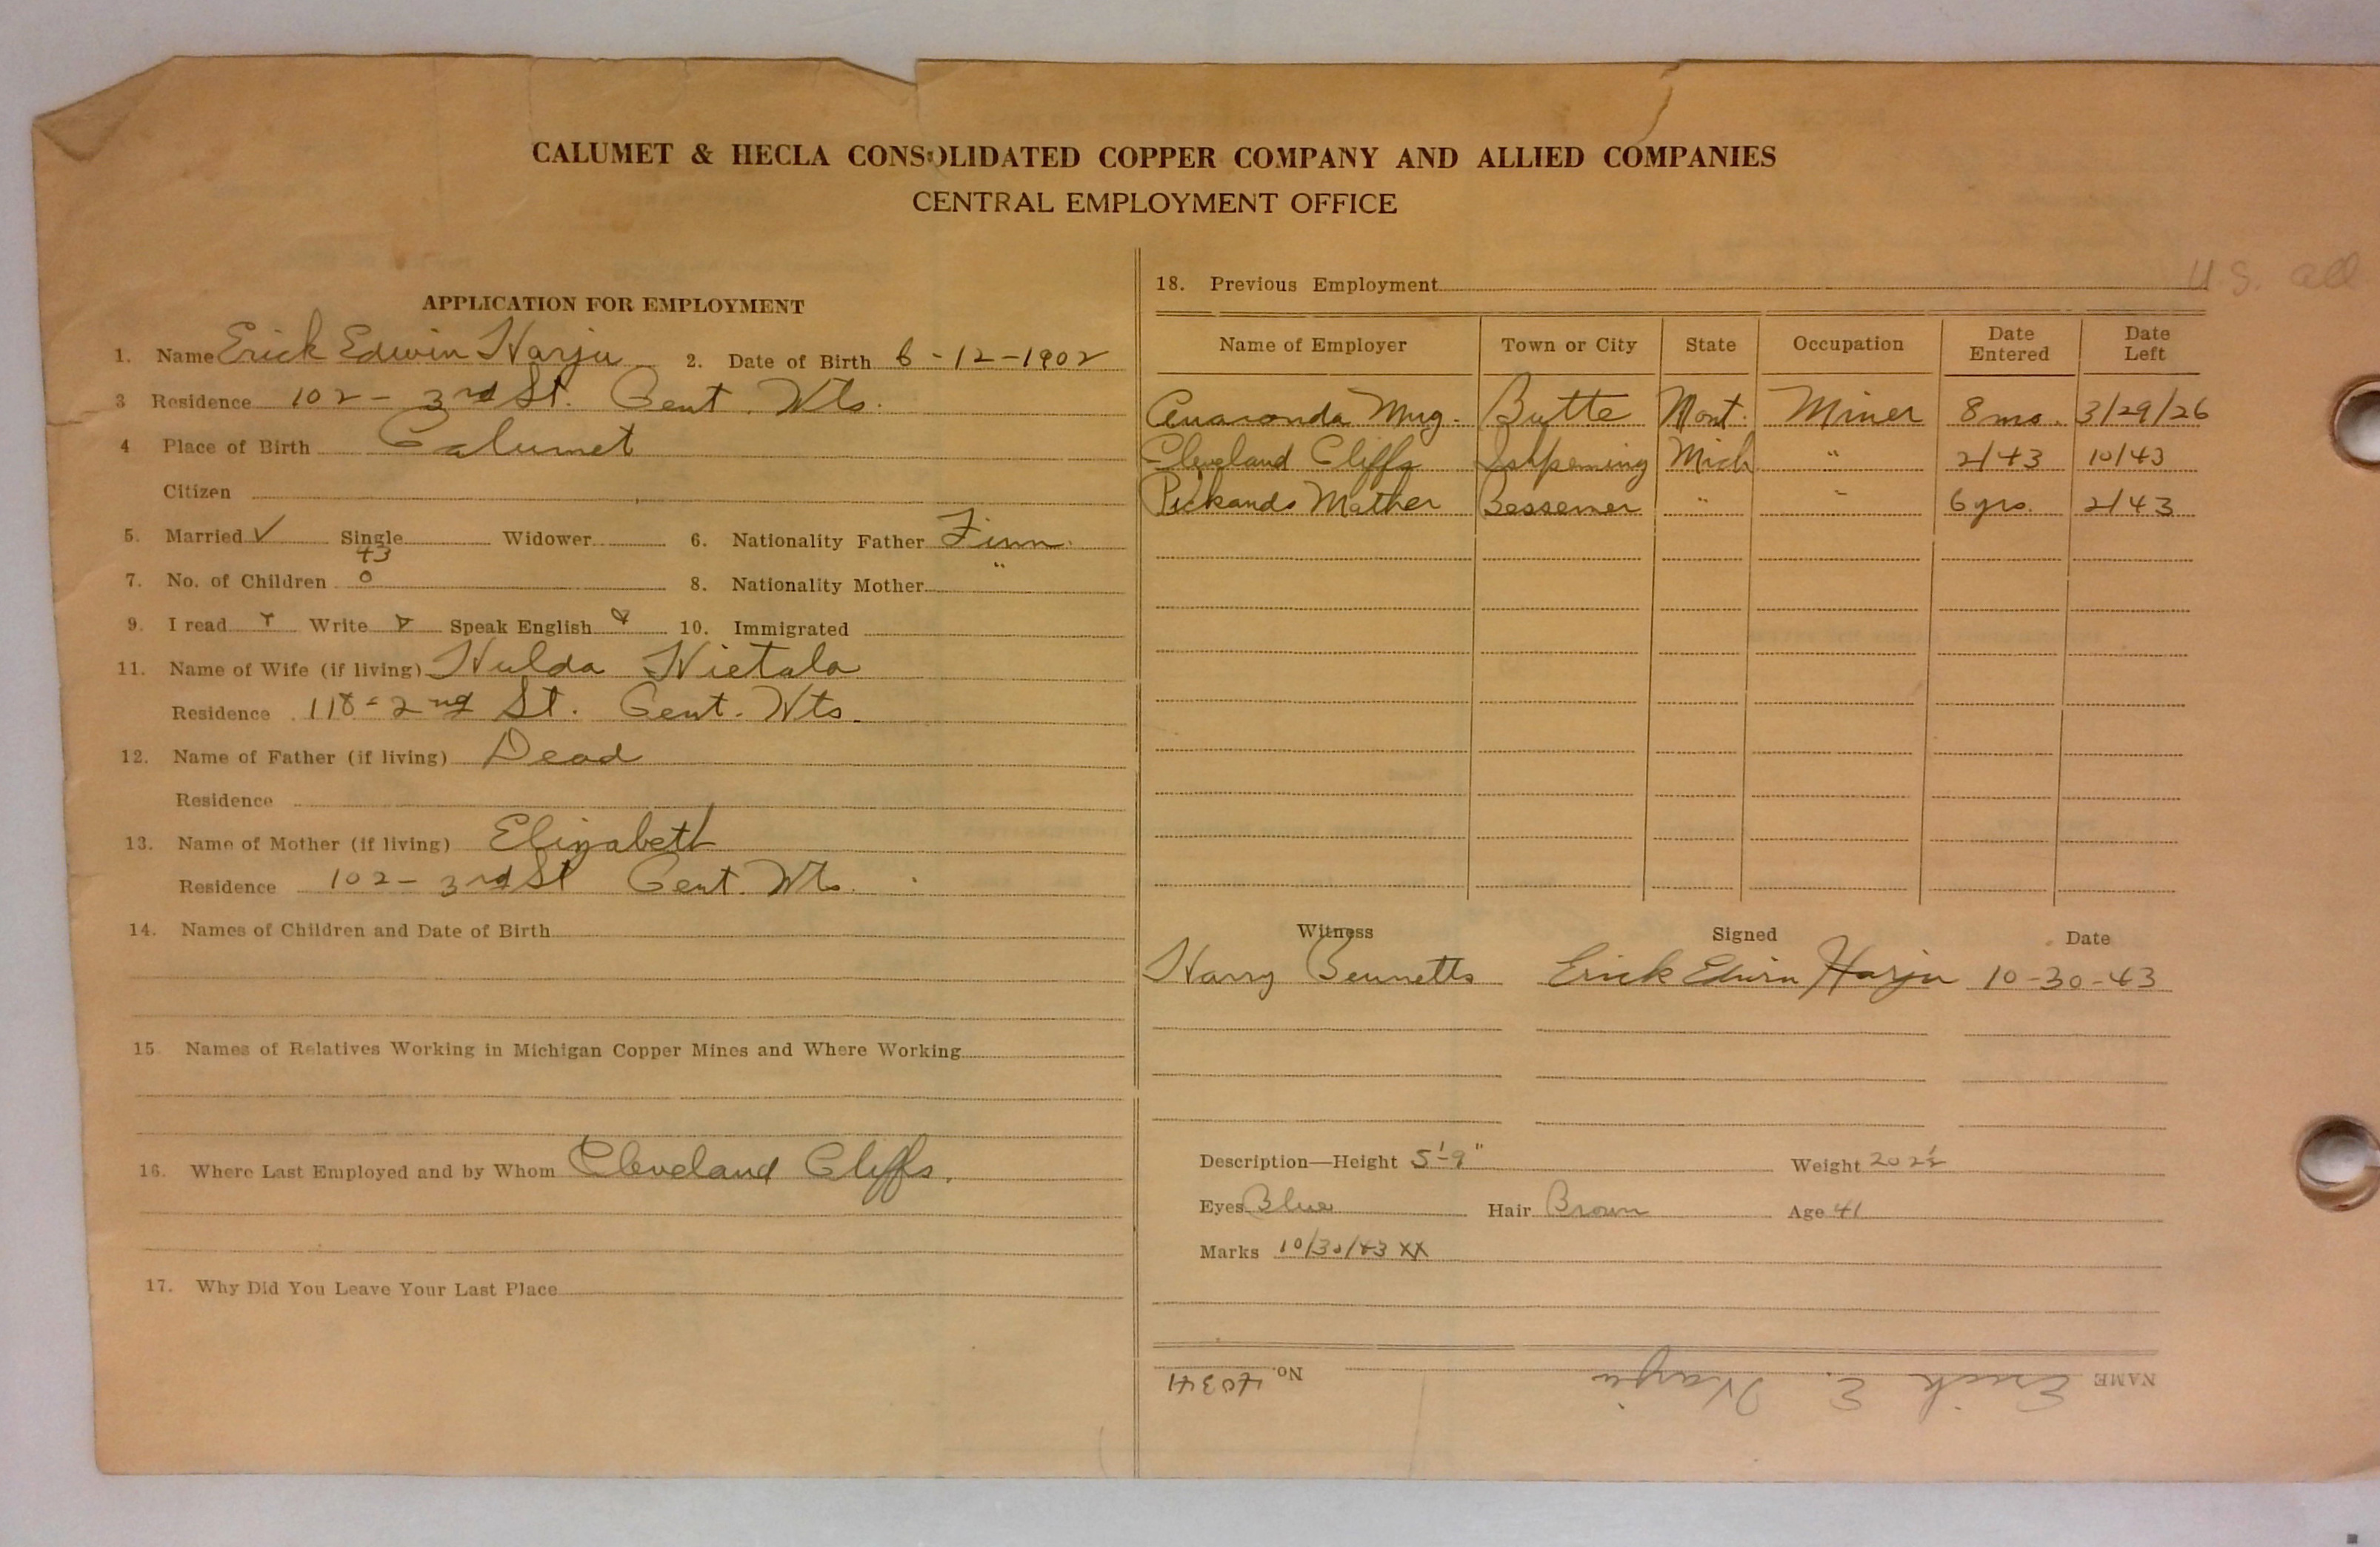 CALUMET & HECLA CONSOLIDATED COPPER COMPANY AND ALLIED COMPANIES
CENTRAL EMPLOYMENT OFFICE
APPLICATION FOR EMPLOYMENT
1. Name Erick Edwin Harju 2. Date of Birth 6-12-1902
3 Residence 102 - 3rd St. Cent. Hts.
4 Place of Birth Calumet
Citizen
5. Married ✓ Single Widower 6. Nationality Father Finn.
43
7. No. of Children 0 8. Nationality Mother "
9. I read Write Speak English 10. Immigrated
11. Name of Wife (if living) Hulda Hietala
Residence 118 - 2nd St. Cent. Hts.
12. Name of Father (if living) Dead
Residence
13. Name of Mother (if living) Elizabeth
Residence 102 - 3rd St Cent. Hts.
14. Names of Children and Date of Birth
15. Names of Relatives Working in Michigan Copper Mines and Where Working
16. Where Last Employed and by Whom Cleveland Cliffs.
17. Why Did You Leave Your Last Place
18. Previous Employment U.S. all
Name of Employer Town or City State Occupation Date Entered Date Left
Anaconda Mng. Butte Mont. Miner 8 mo. 3/29/26
Cleveland Cliffs Ishpeming Mich " 2/43 10/43
Pickands Mather Bessemer " " 6 yrs. 2/43
Witness Signed Date
Harry Bennetts Erick Edwin Harju 10-30-43
Description—Height 5'-9" Weight 202½
Eyes Blue Hair Brown Age 41
Marks 10/30/43 XX
NAME Erick E. Harju No. 40341